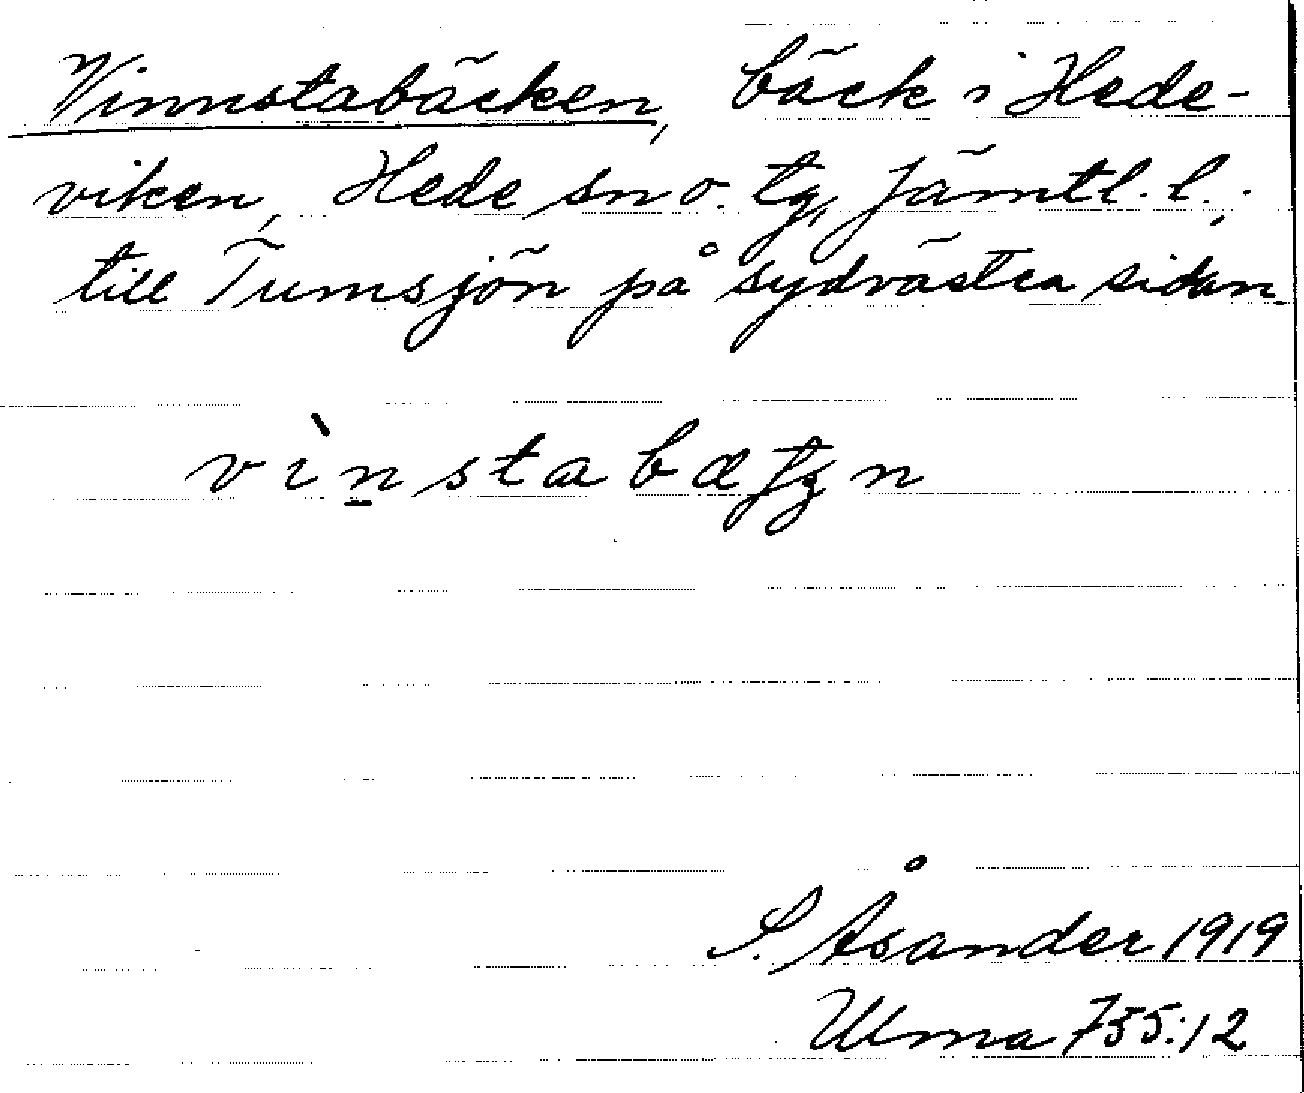 Vinnstabäcken, bäck i Hede-
viken, Hede sn o. tg, Jämtl. l.;
till Tumsjön på sydvästra sidan.
S. Åsander 1919
Ulma 755:12